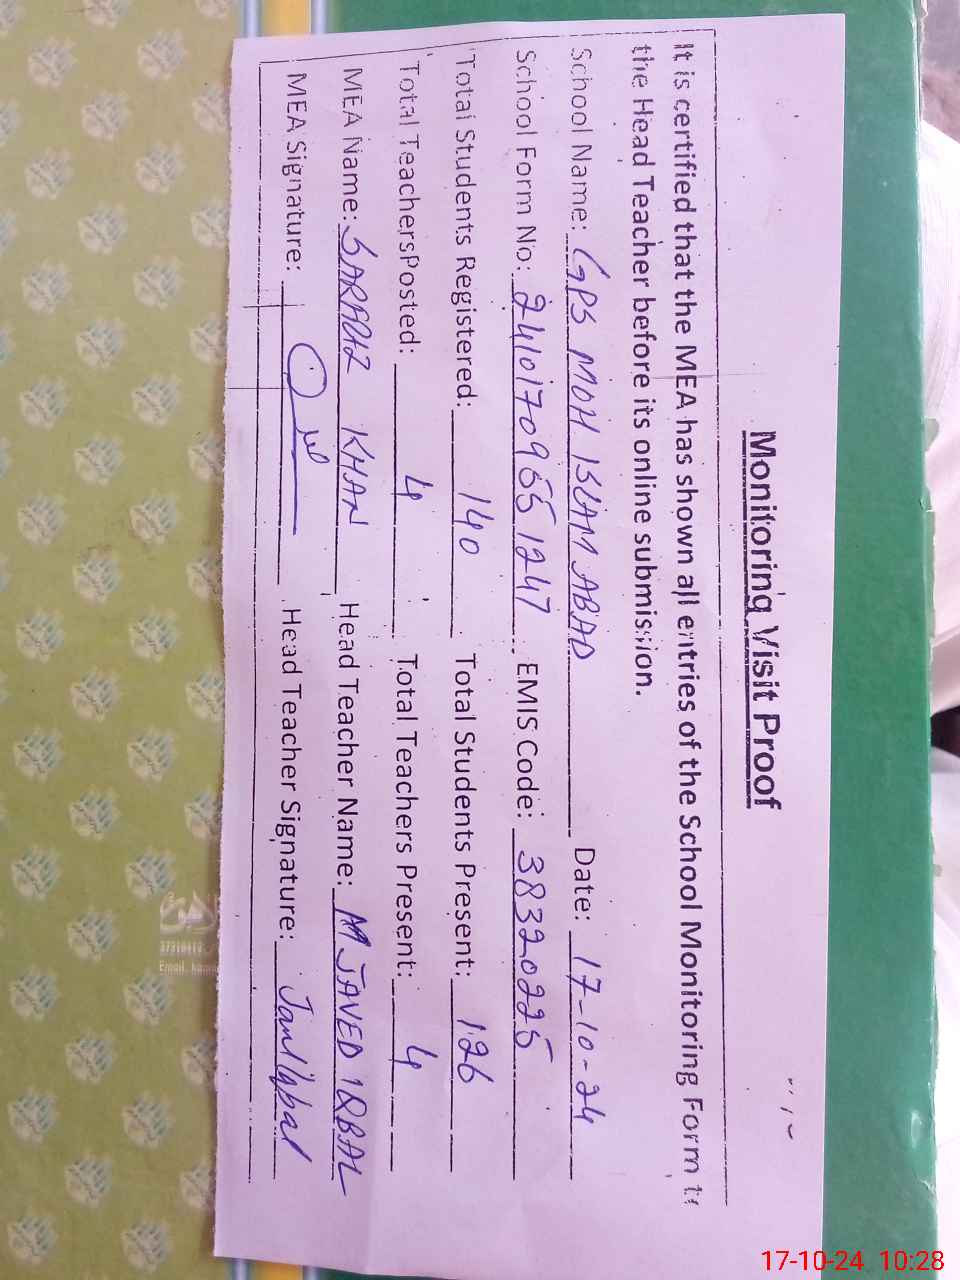 Monitoring Visit Proof
It is certified that the MEA has shown all entries of the School Monitoring Form to
the Head Teacher before its online submission.
School Name: GPS MOH ISLAM ABAD Date: 17-10-24
School Form No: 24101709551247 EMIS Code: 38320225
Total Students Registered: 140 Total Students Present: 126
Total TeachersPosted: 4 Total Teachers Present: 4
MEA Name: SARADIZ KHAN Head Teacher Name: M JAVED IQBAL
MEA Signature: Head Teacher Signature: Javed Iqbal
17-10-24 10:28